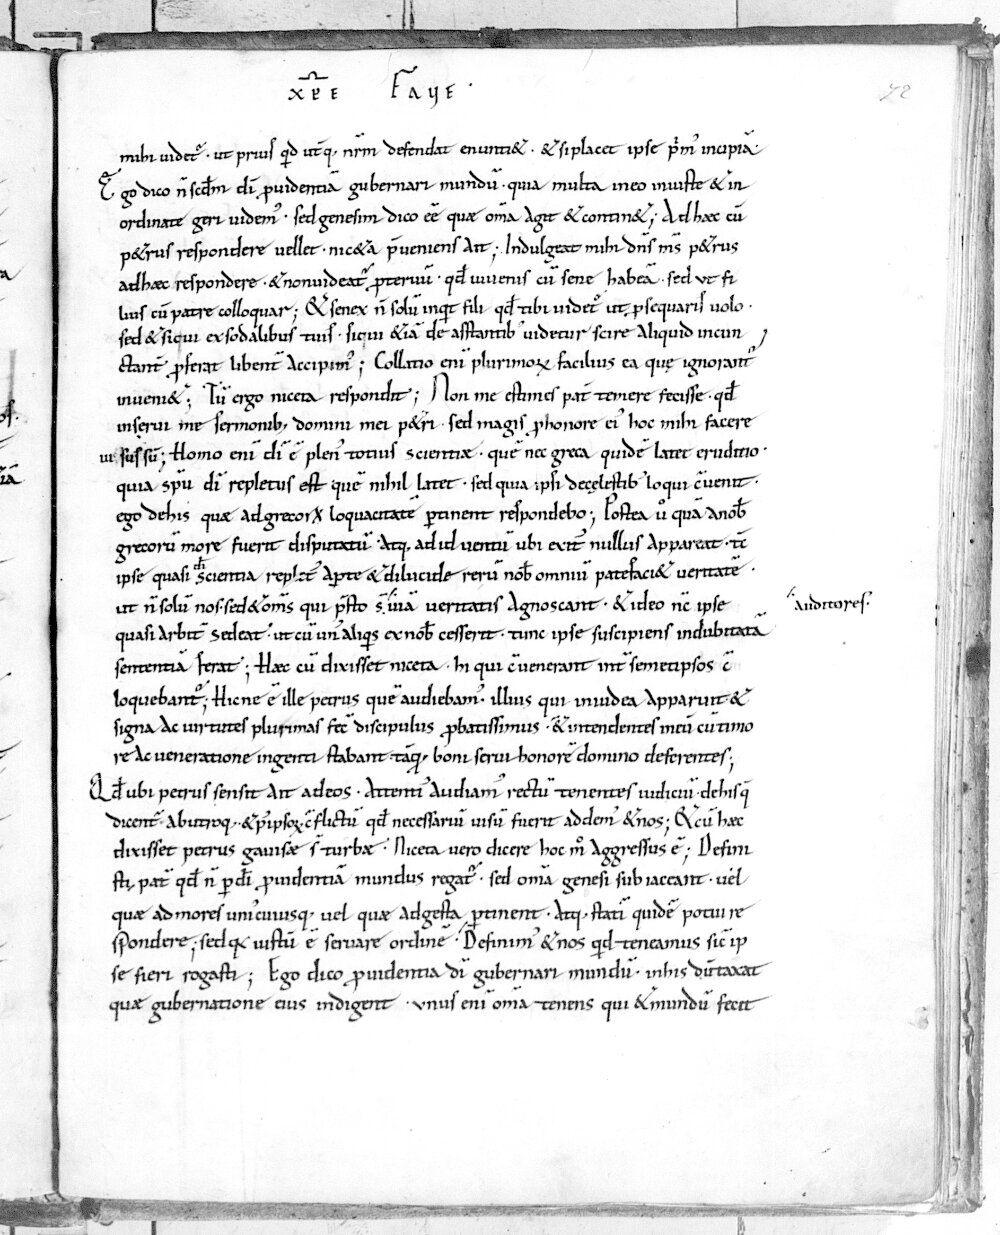 xp̅e Faue ·
72
mihi uidet᷒ · ut prius qd̅ ut̅q; nr̅m defendat enunti& · & si placet ipse p̅m᷒ incipia̅ ·
Ego dico n̅ scd̅m di̅ ꝓuidentia̅ gubernari mundu̅ · quia multa in eo iniuste & in
ordinate geri uidem᷒ · sed genesim dico ee̅ quæ om̅a agit & contin&; Ad hæc cu̅
p&rus respondere uellet · nic&a p̅ueniens ait; Indulgeat mihi dn̅s m̅s p&rus
ad hæc respondere · & non uideat᷒ ꝓteruu̅ · qd̅ iuuenis cu̅ sene habea̅ · sed ut fi
lius cu̅ patre colloquar; Et senex n̅ solu̅ inqt fili qd̅ tibi uidet᷒ ut ꝓsequaris uolo ·
sed & siqui ex sodalibus tuis · siqui &ia̅ de asstantib; uidetur scire aliquid incun
ctant̅ ꝓferat libent̅ accipim᷒; Collatio eni̅ plurimoꝝ facilius ea quę ignorant᷒
inueni&; Tu̅ ergo niceta respondit; Non me estimes pat̅ temere fecisse · qd̅
inserui me sermonib; domini mei p&ri · sed magis ꝓ honore ei᷒ hoc mihi facere
uisus su̅; Homo eni̅ di̅ e̅ plen᷒ totius scientiæ · que̅ nec greca quide̅ latet eruditio ·
quia sp̅u di̅ repletus est que̅ nihil latet · sed quia ipsi de cęlestib; loqui c̅uenit ·
ego de his quæ ad grecoꝝ loquacitate̅ ꝑtinent respondebo; Postea u᷒ qua̅ a nob̅
grecoru̅ more fuerit disputatu̅ · atq; ad id uentu̅ ubi exit᷒ nullus appareat · tc̅
ipse quasi di̅ scientia replet᷒ aꝑte & dilucide reru̅ nob̅ omniu̅ patefaci& ueritate̅ ·
ut n̅ solu̅ nos · sed & om̅s qui p̅sto s̅ uia̅ ueritatis agnoscant · & ideo nc̅ ipse
auditores ·
quasi arbit᷒ sedeat · ut cu̅ un᷒ aliqs ex nob̅ cesserit · tunc ipse suscipiens indubitata̅
sententia̅ ferat; Hæc cu̅ dixisset niceta · hi qui c̅uenerant int̅ semetipsos c̅
loquebant᷒; Hicne e̅ ille petrus que̅ audiebam᷒ · illius qui in iudea apparuit &
signa ac uirtutes plurimas fec̅ discipulus ꝓbatissimus · & intendentes in eu̅ cu̅ timo
re ac ueneratione ingenti stabant · ta̅q; boni serui honore̅ domino deferentes;
Qd̅ ubi petrus sensit ait ad eos · Attenti᷒ audiam᷒ rectu̅ tenentes iudiciu̅ · de his q̅
dicent᷒ ab utroq; · & p᷒ ipsoꝝ c̅flictu̅ qd̅ necessariu̅ uisu̅ fuerit addem᷒ & nos; Et cu̅ hæc
dixisset petrus gauisæ s̅ turbæ · Niceta uero dicere hoc m᷒ aggressus e̅; Defini
sti pat̅ qd̅ n̅ ꝑ di̅ ꝓuidentia̅ mundus regat᷒ · sed om̅a genesi subiaceant · uel
quæ ad mores uni᷒cuiusq; uel quæ ad gesta ꝑtinent · Atq; stati̅ quide̅ potui re
spondere; sed qꝛ iustu̅ e̅ seruare ordine̅ · Definim᷒ & nos qd̅ teneamus sic̅ ip
se fieri rogasti; Ego dico ꝓuidentia di̅ gubernari mundu̅ · in his du̅taxat
quæ gubernatione eius indigent · unus eni̅ om̅a tenens qui & mundu̅ fecit